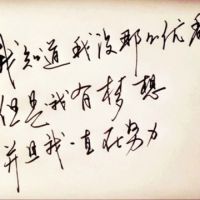 我知道我没那么优秀
但是我有梦想
并且我一直在努力